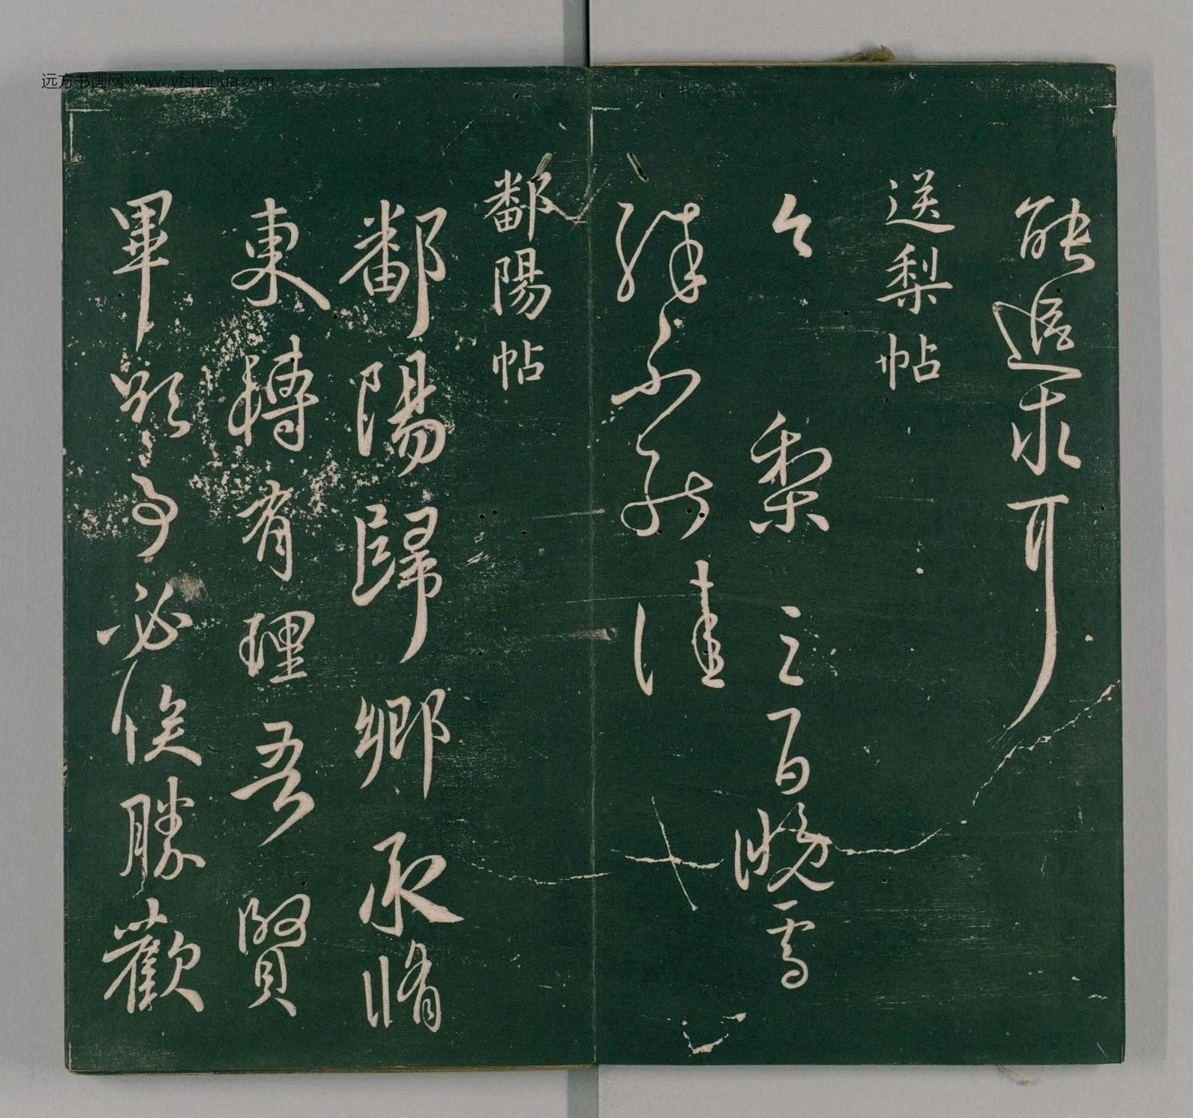 能求
送梨帖
今梨三百晚雪
殊不能佳
鄱陽帖
鄱陽歸鄉承脩
東轉有理吾賢
畢欲事必俟勝歡
远方书画网-www.yfshuhua.com